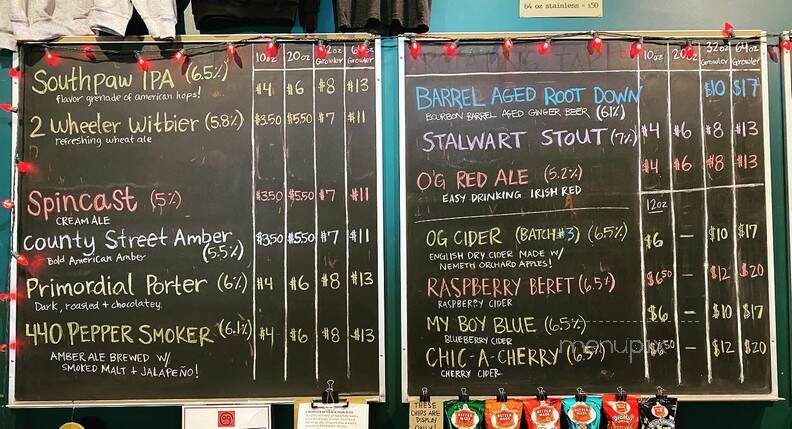 64 oz stainless = $50
10oz 20oz 32oz Growler 64oz Growler
Southpaw IPA (6.5%) $4 $6 $8 $13
flavor grenade of american hops!
2 Wheeler Witbier (5.8%) $3.50 $5.50 $7 $11
refreshing wheat ale
Spincast (5%) $3.50 $5.50 $7 $11
CREAM ALE
County Street Amber $3.50 $5.50 $7 $11
Bold American Amber (5.5%)
Primordial Porter (6%) $4 $6 $8 $13
Dark, roasted + chocolatey.
440 PEPPER SMOKER (6.1%) $4 $6 $8 $13
AMBER ALE BREWED W/
SMOKED MALT + JALAPEÑO!
10oz 20oz 32oz Growler 64oz Growler
BARREL AGED ROOT DOWN $10 $17
BOURBON BARREL AGED GINGER BEER (6.1%)
STALWART STOUT (7%) $4 $6 $8 $13
O'G RED ALE (5.2%) $4 $6 $8 $13
EASY DRINKING IRISH RED
12oz
OG CIDER (BATCH #3) (6.5%) $6 — $10 $17
ENGLISH DRY CIDER MADE W/
NEMETH ORCHARD APPLES!
RASPBERRY BERET (6.5%) $6.50 — $12 $20
RASPBERRY CIDER
MY BOY BLUE (6.5%) $6 — $10 $17
BLUEBERRY CIDER
menupix
CHIC-A-CHERRY (6.5%) $6.50 — $12 $20
CHERRY CIDER
THESE
CHIPS ARE
DISPLAY
ONLY!